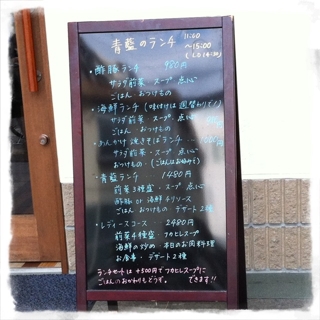 青藍のランチ 11:00
~15:00
(L.O 14:30)
・酢豚ランチ 980円
サラダ 前菜 スープ 点心
ごはん おつけもの
・海鮮ランチ (味付けは週替わりです)
サラダ 前菜・スープ 点心
ごはん おつけもの
・あんかけ焼きそばランチ
サラダ 前菜・スープ 点心
おつけもの (ごはんはおかゆ)
・青藍ランチ 1480円
前菜3種盛・スープ 点心
酢豚 or 海鮮チリソース
ごはん おつけもの デザート2種
・レディースコース 2480円
前菜4種盛・フカヒレスープ
海鮮の炒め・本日のお肉料理
お食事・デザート2種
ランチセットは+500円でフカヒレスープに
ごはんのおかわりもどうぞ。 できます!!